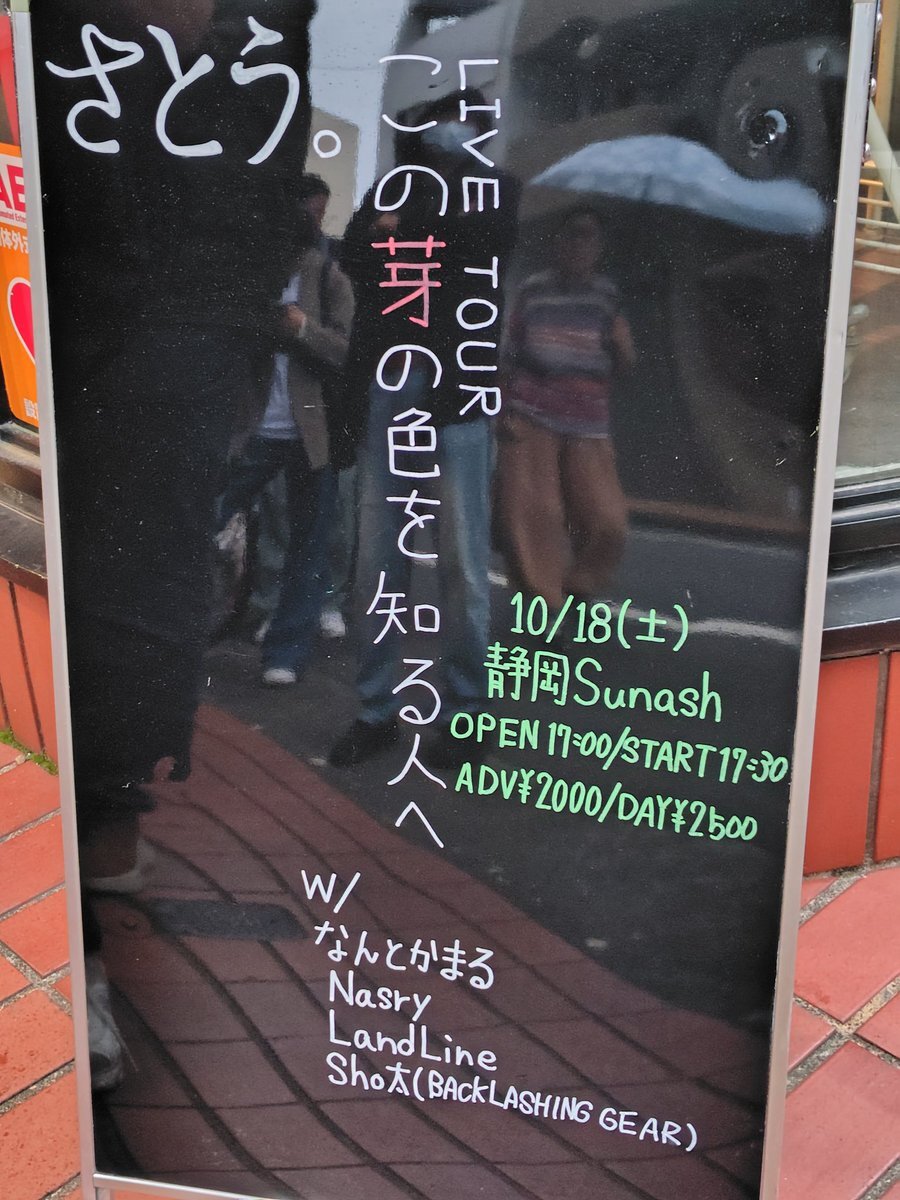 さとう。
LIVE TOUR
この芽の色を知る人へ
10/18(土)
静岡Sunash
OPEN 17:00/START 17:30
ADV¥2000/DAY¥2500
W/
なんとかまる
Nasry
LandLine
Sho太(BACKLASHING GEAR)